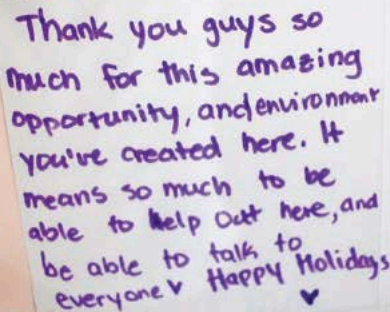 Thank you guys so
much for this amazing
opportunity, and environment
you've created here. It
means so much to be
able to help out here, and
be able to talk to
everyone ♥ Happy Holidays
♥